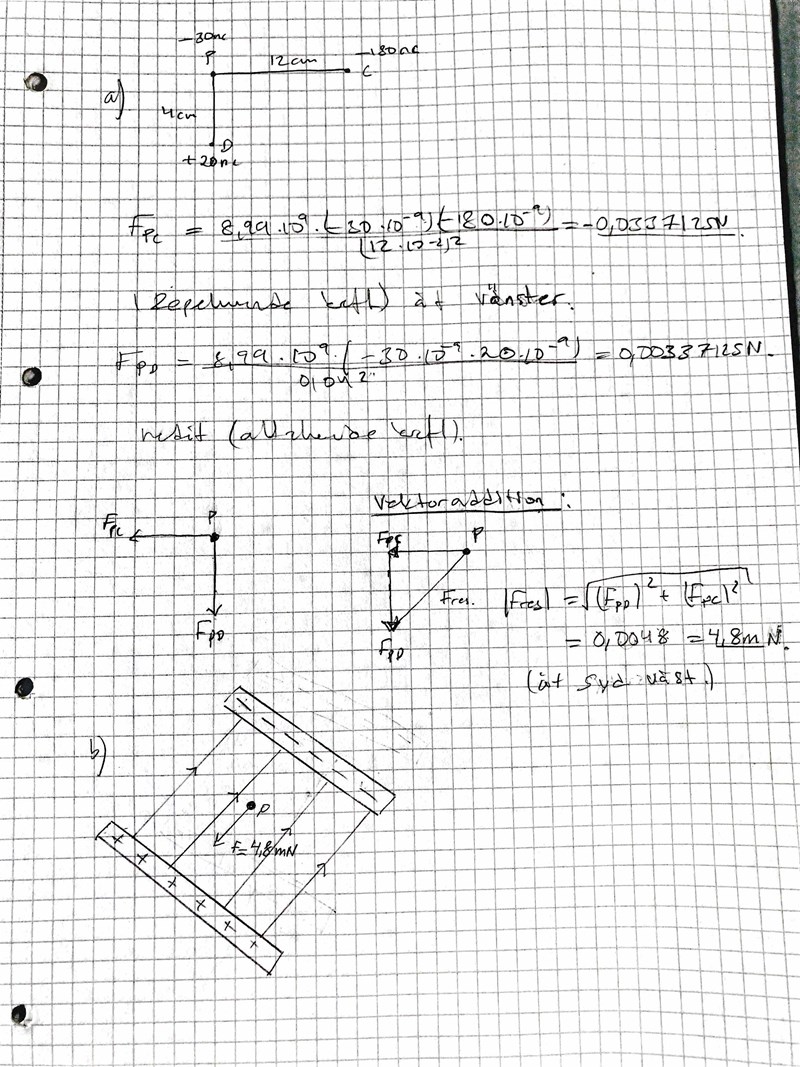 -30nc
P 12cm -180nc
C
a) 4cm
D
+20nc
F_PC = 8,99·10⁹·(-30·10⁻⁹)(-180·10⁻⁹) / (12·10⁻²)² = -0,0337125N.
(Repelerande kraft) åt vänster.
F_PD = 8,99·10⁹·(-30·10⁻⁹·20·10⁻⁹) / 0,04² = 0,00337125N.
nedåt (attraherande kraft).
Vektoraddition:
F_PC P
F_PD
F_PC P
Fres.
F_PD
|Fres| = √(F_PD)² + (F_PC)²
= 0,0048 = 4,8mN.
(åt sydväst.)
b)
- - - - - -
P
F=4,8mN
+ + + + + +